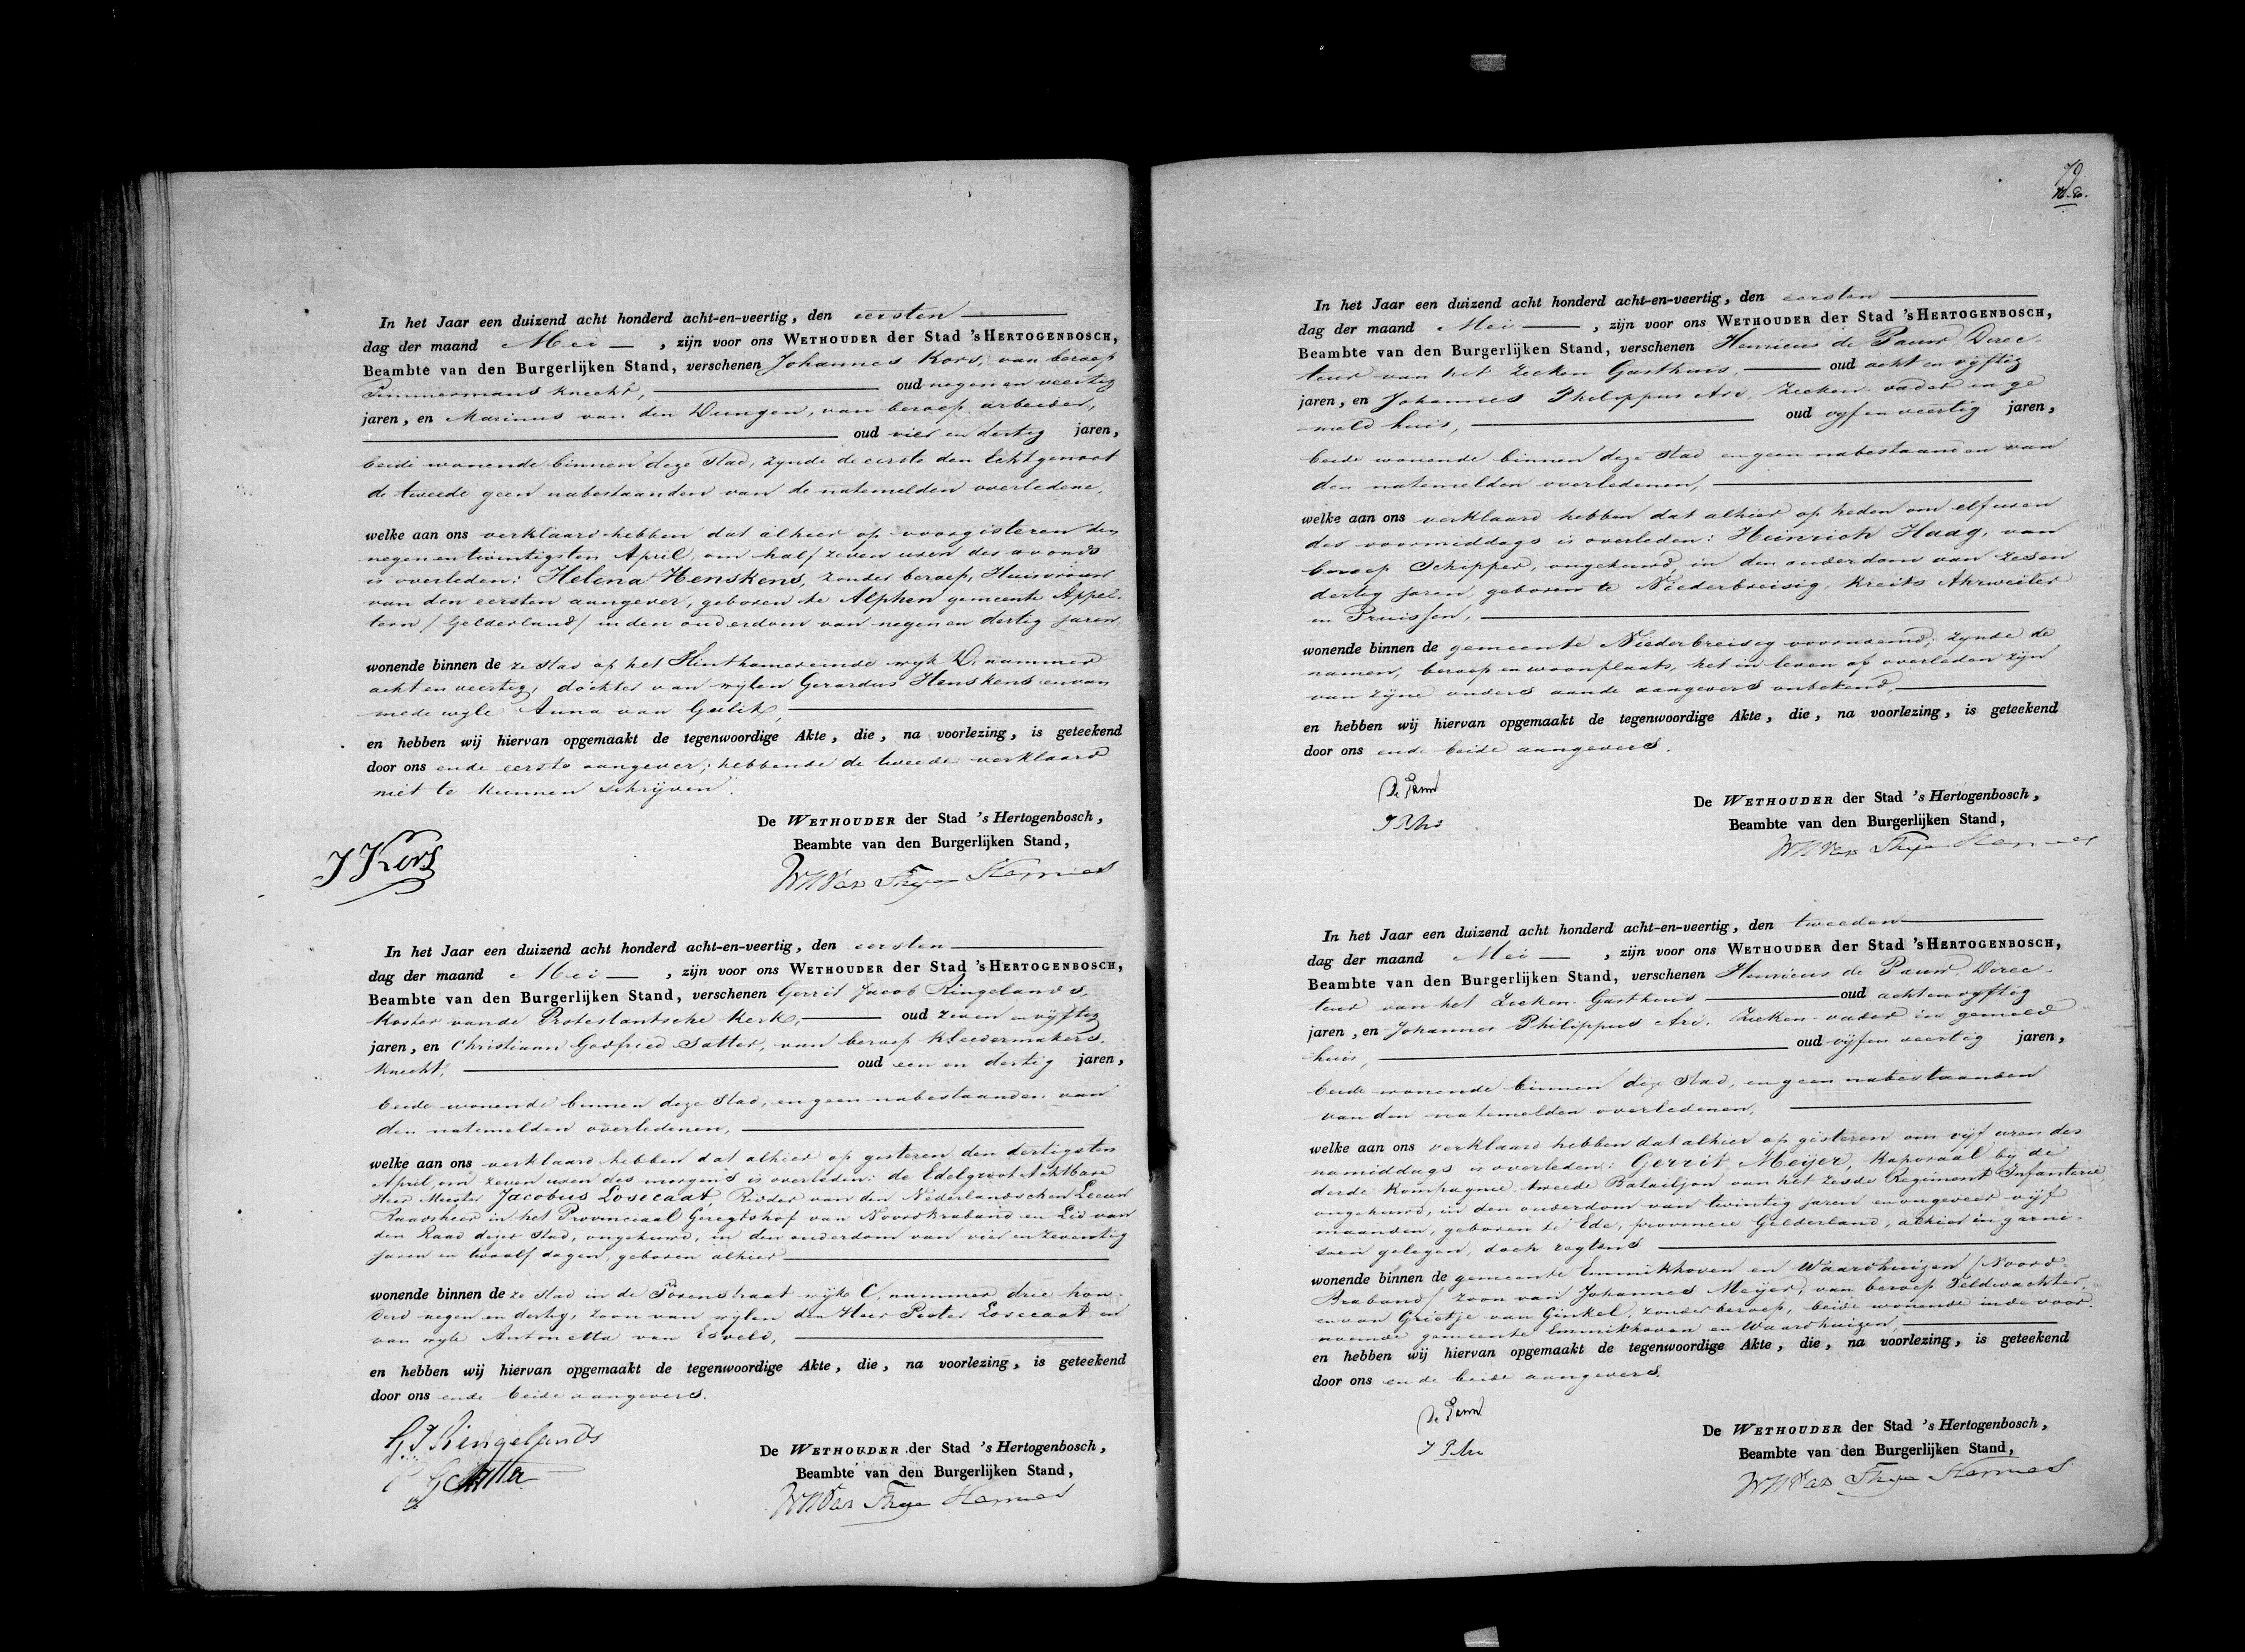 In het Jaar een duizend acht honderd acht-en-veertig, den eersten
dag der maand Mei, zijn voor ons WETHOUDER der Stad 's HERTOGENBOSCH,
Beambte van den Burgerlijken Stand, verschenen Johannes Kors, van beroep
Timmermans knecht, oud negen en veertig
jaren, en Marinus van den Dungen, van beroep arbeider,
oud vier en dertig jaren,
beide wonende binnen deze Stad, zynde de eerste den Echtgenoot
de tweede geen nabestaanden van de natemelden overledene,
welke aan ons verklaard hebben dat alhier op voorgisteren den
negenentwintigsten April, om half zeven uren des avonds
is overleden: Helena Henskens, zonder beroep, Huisvrouw
van den eersten aangever, geboren te Alphen gemeente Appel-
tern / Gelderland / in den ouderdom van negen en dertig jaren,
wonende binnen de ze Stad op het Hinthamereinde wyk D. nummer
acht en veertig, dochter van wylen Gerardus Henskens en van
mede wyle Anna van Gulik,
en hebben wij hiervan opgemaakt de tegenwoordige Akte, die, na voorlezing, is geteekend
door ons ende eerste aangever; hebbende de tweede verklaard
niet te kunnen schrijven.
De WETHOUDER der Stad 's Hertogenbosch,
Beambte van den Burgerlijken Stand,
J Kors
In het Jaar een duizend acht honderd acht-en-veertig, den eersten
dag der maand Mei, zijn voor ons WETHOUDER der Stad 's HERTOGENBOSCH,
Beambte van den Burgerlijken Stand, verschenen Gerrit Jacob Ringelands,
Koster vande Protestantsche Kerk, oud zeven en vyftig
jaren, en Christiaan Godfried Satter, van beroep Kleedermakers
knecht, oud een en dertig jaren,
beide wonende binnen deze Stad, en geen nabestaanden van
den natemelden overledenen,
welke aan ons verklaard hebben dat alhier op gisteren den dertigsten
April, om zeven uren des morgens is overleden: de Edelgroot Achtbare
Heer Meester Jacobus Loseeaat, Ridder van den Nederlandschen Leeuw
Raadsheer in het Provinciaal Geregtshof van Noordbraband en Lid van
den Raad dezer Stad, ongehuwd, in den ouderdom van vier en zeventig
jaren en twaalf dagen, geboren alhier
wonende binnen de ze Stad in de Torenstraat wyk C, nummer drie hon-
derd negen en dertig, zoon van wylen den Heer Pieter Loseeaat en
van wyle Antonetta van Esveld,
en hebben wij hiervan opgemaakt de tegenwoordige Akte, die, na voorlezing, is geteekend
door ons ende beide aangevers.
G J Ringelands
De WETHOUDER der Stad 's Hertogenbosch,
Beambte van den Burgerlijken Stand,
79
In het Jaar een duizend acht honderd acht-en-veertig, den eersten
dag der maand Mei, zijn voor ons WETHOUDER der Stad 's HERTOGENBOSCH,
Beambte van den Burgerlijken Stand, verschenen Henricus de Pauw Direc-
teur van het Zieken Gasthuis, oud acht en vyftig
jaren, en Johannes Philippus Ari, Zieken-vader in ge
meld huis, oud vyf en veertig jaren,
beide wonende binnen deze Stad en geen nabestaanden van
den natemelden overledenen,
welke aan ons verklaard hebben dat alhier op heden om elf uren
des voormiddags is overleden: Heinrich Haag, van
beroep Schipper, ongehuwd, in den ouderdom van zesen
dertig jaren, geboren te Niederbreisig, Kreits Ahrweiler
in Pruissen,
wonende binnen de gemeente Niederbreisig voornoemd; zynde de
namen, beroep en woonplaats, het in leven of overleden zyn
van zyne ouders aande aangevers onbekend,
en hebben wij hiervan opgemaakt de tegenwoordige Akte, die, na voorlezing, is geteekend
door ons ende beide aangevers.
De WETHOUDER der Stad 's Hertogenbosch,
Beambte van den Burgerlijken Stand,
In het Jaar een duizend acht honderd acht-en-veertig, den tweeden
dag der maand Mei, zijn voor ons WETHOUDER der Stad 's HERTOGENBOSCH,
Beambte van den Burgerlijken Stand, verschenen Henricus de Pauw Direc-
teur van het Zieken-Gasthuis oud acht en vyftig
jaren, en Johannes Philippus Ari, Zieken-vader in gemeld
huis, oud vijf en veertig jaren,
beide wonende binnen deze Stad, en geen nabestaanden
van den natemelden overledenen,
welke aan ons verklaard hebben dat alhier op gisteren om vijf uren des
namiddags is overleden: Gerrit Meijer, Kaporaal by de
derde Kompagnie, tweede Bataijlon van het zesde Regiment Infanterie
ongehuwd, in den ouderdom van twintig jaren en ongeveer vijf
maanden, geboren te Ede, provincie Gelderland, alhier in garni-
soen gelegen, doch regtens
wonende binnen de gemeente Emmikhoven en Waardhuizen / Noord-
Braband / zoon van Johannes Meijer, van beroep Veldwachter,
en van Grietje van Ginkel, zonder beroep, beide wonende inde voor-
noemde gemeente Emmikhoven en Waardhuizen,
en hebben wij hiervan opgemaakt de tegenwoordige Akte, die, na voorlezing, is geteekend
door ons en de beide aangevers.
De WETHOUDER der Stad 's Hertogenbosch,
Beambte van den Burgerlijken Stand,